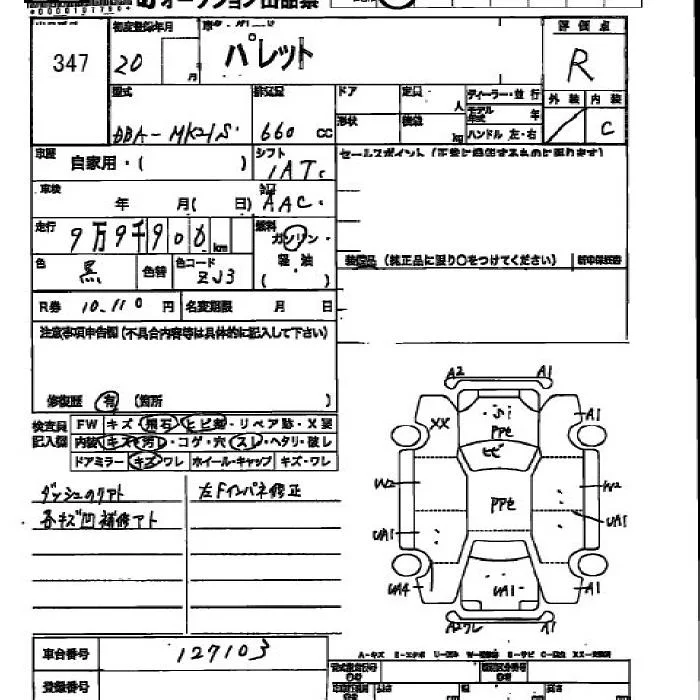 オークション出品票
347
初度登録年月
20
月
車名
パレット
評価点
R
型式
DBA-MK21S
排気量
660 cc
ドア
定員
人
形状
積載
kg
ディーラー・並行
モデル年式 年
ハンドル 左・右
外装 内装
C
車歴 自家用・( )
シフト
IAT
車検
年 月( 日)
AAC
走行
9万9千900 km
燃料
ガソリン・
軽油
( )
色 黒
色替
色コード
ZJ3
セールスポイント(正常に機能するものに限ります)
装備品(純正品に限り○をつけてください)
新車保証書
R券 10,110 円
名変期限 月 日
注意事項申告欄(不具合内容等は具体的に記入して下さい)
修復歴 有 (箇所 )
検査員
記入欄
FW キズ・飛石・ヒビ割・リペア跡・X要
内装 キズ・汚レ・コゲ・穴・スレ・ヘタリ・破レ
ドアミラー キズ・ワレ ホイール・キャップ キズ・ワレ
ダッシュのリアト
各キズ凹補修アト
左Fインパネ修正
A2 A1
XX
PPE
A1
ヒビ
W2
PPE
W2
UA1
UA1
UA4
UA1
A1
A2ワレ
A1
車台番号 127103
登録番号